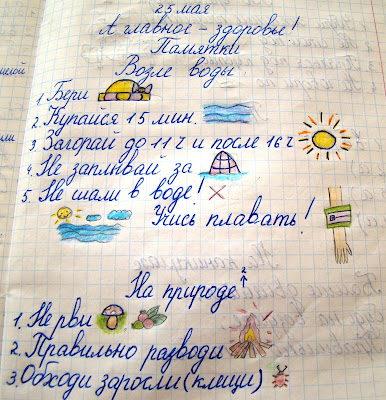 25 мая
А главное - здоровье!
Памятки
Возле воды.
1. Бери
2. Купайся 15 мин.
3. Загорай до 11 ч и после 16 ч
4. Не заплывай за
5. Не шали в воде!
Учись плавать!
На природе. 2
1. Не рви
2. Правильно разводи
3. Обходи заросли (клещи)